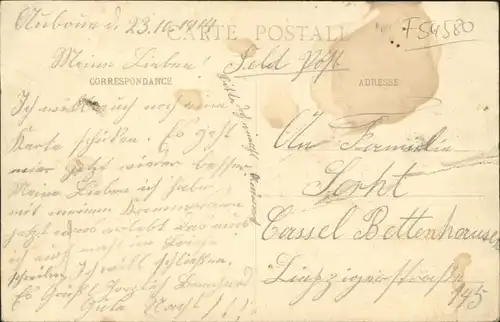 Auboué d. 23.11.1914
CARTE POSTALE
F54580
Meine Lieben!
Feld Post
CORRESPONDANCE
ADRESSE
Ich will auch noch eine
Karte schicken. Es geht
mir jetzt wieder besser
Meine Lieben ich habe
mit meinen Kammeraden
jetzt etwas erlebt das
auch nicht im
schreiben Ich will schließen.
Es Grüßt herzlich Bernhard
Gute Nacht!!!
Bitte
An Familie
Serht
Cassel Bettenhausen
Leipzigerstrasse
145